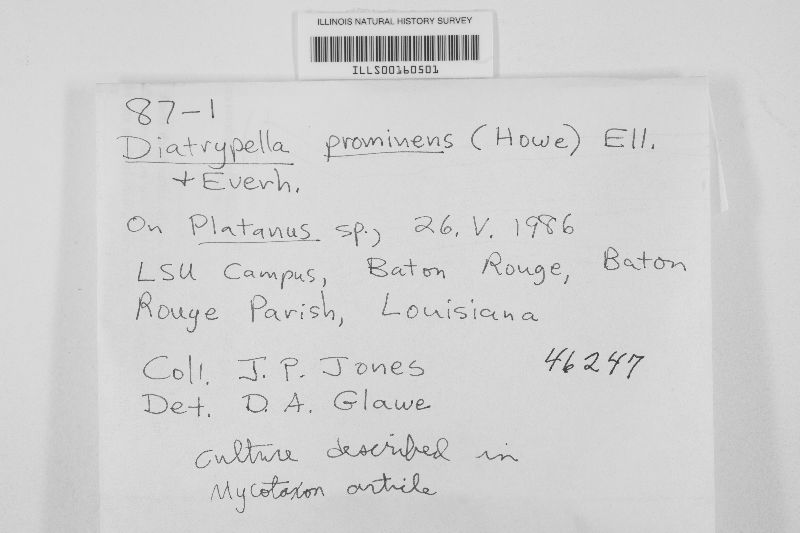 ILLINOIS NATURAL HISTORY SURVEY
ILLS00160501
87-1
Diatrypella prominens (Howe) Ell.
+ Everh.
On Platanus sp., 26. V. 1986
LSU Campus, Baton Rouge, Baton
Rouge Parish, Louisiana
Coll. J. P. Jones 46247
Det. D. A. Glawe
culture described in
Mycotaxon article